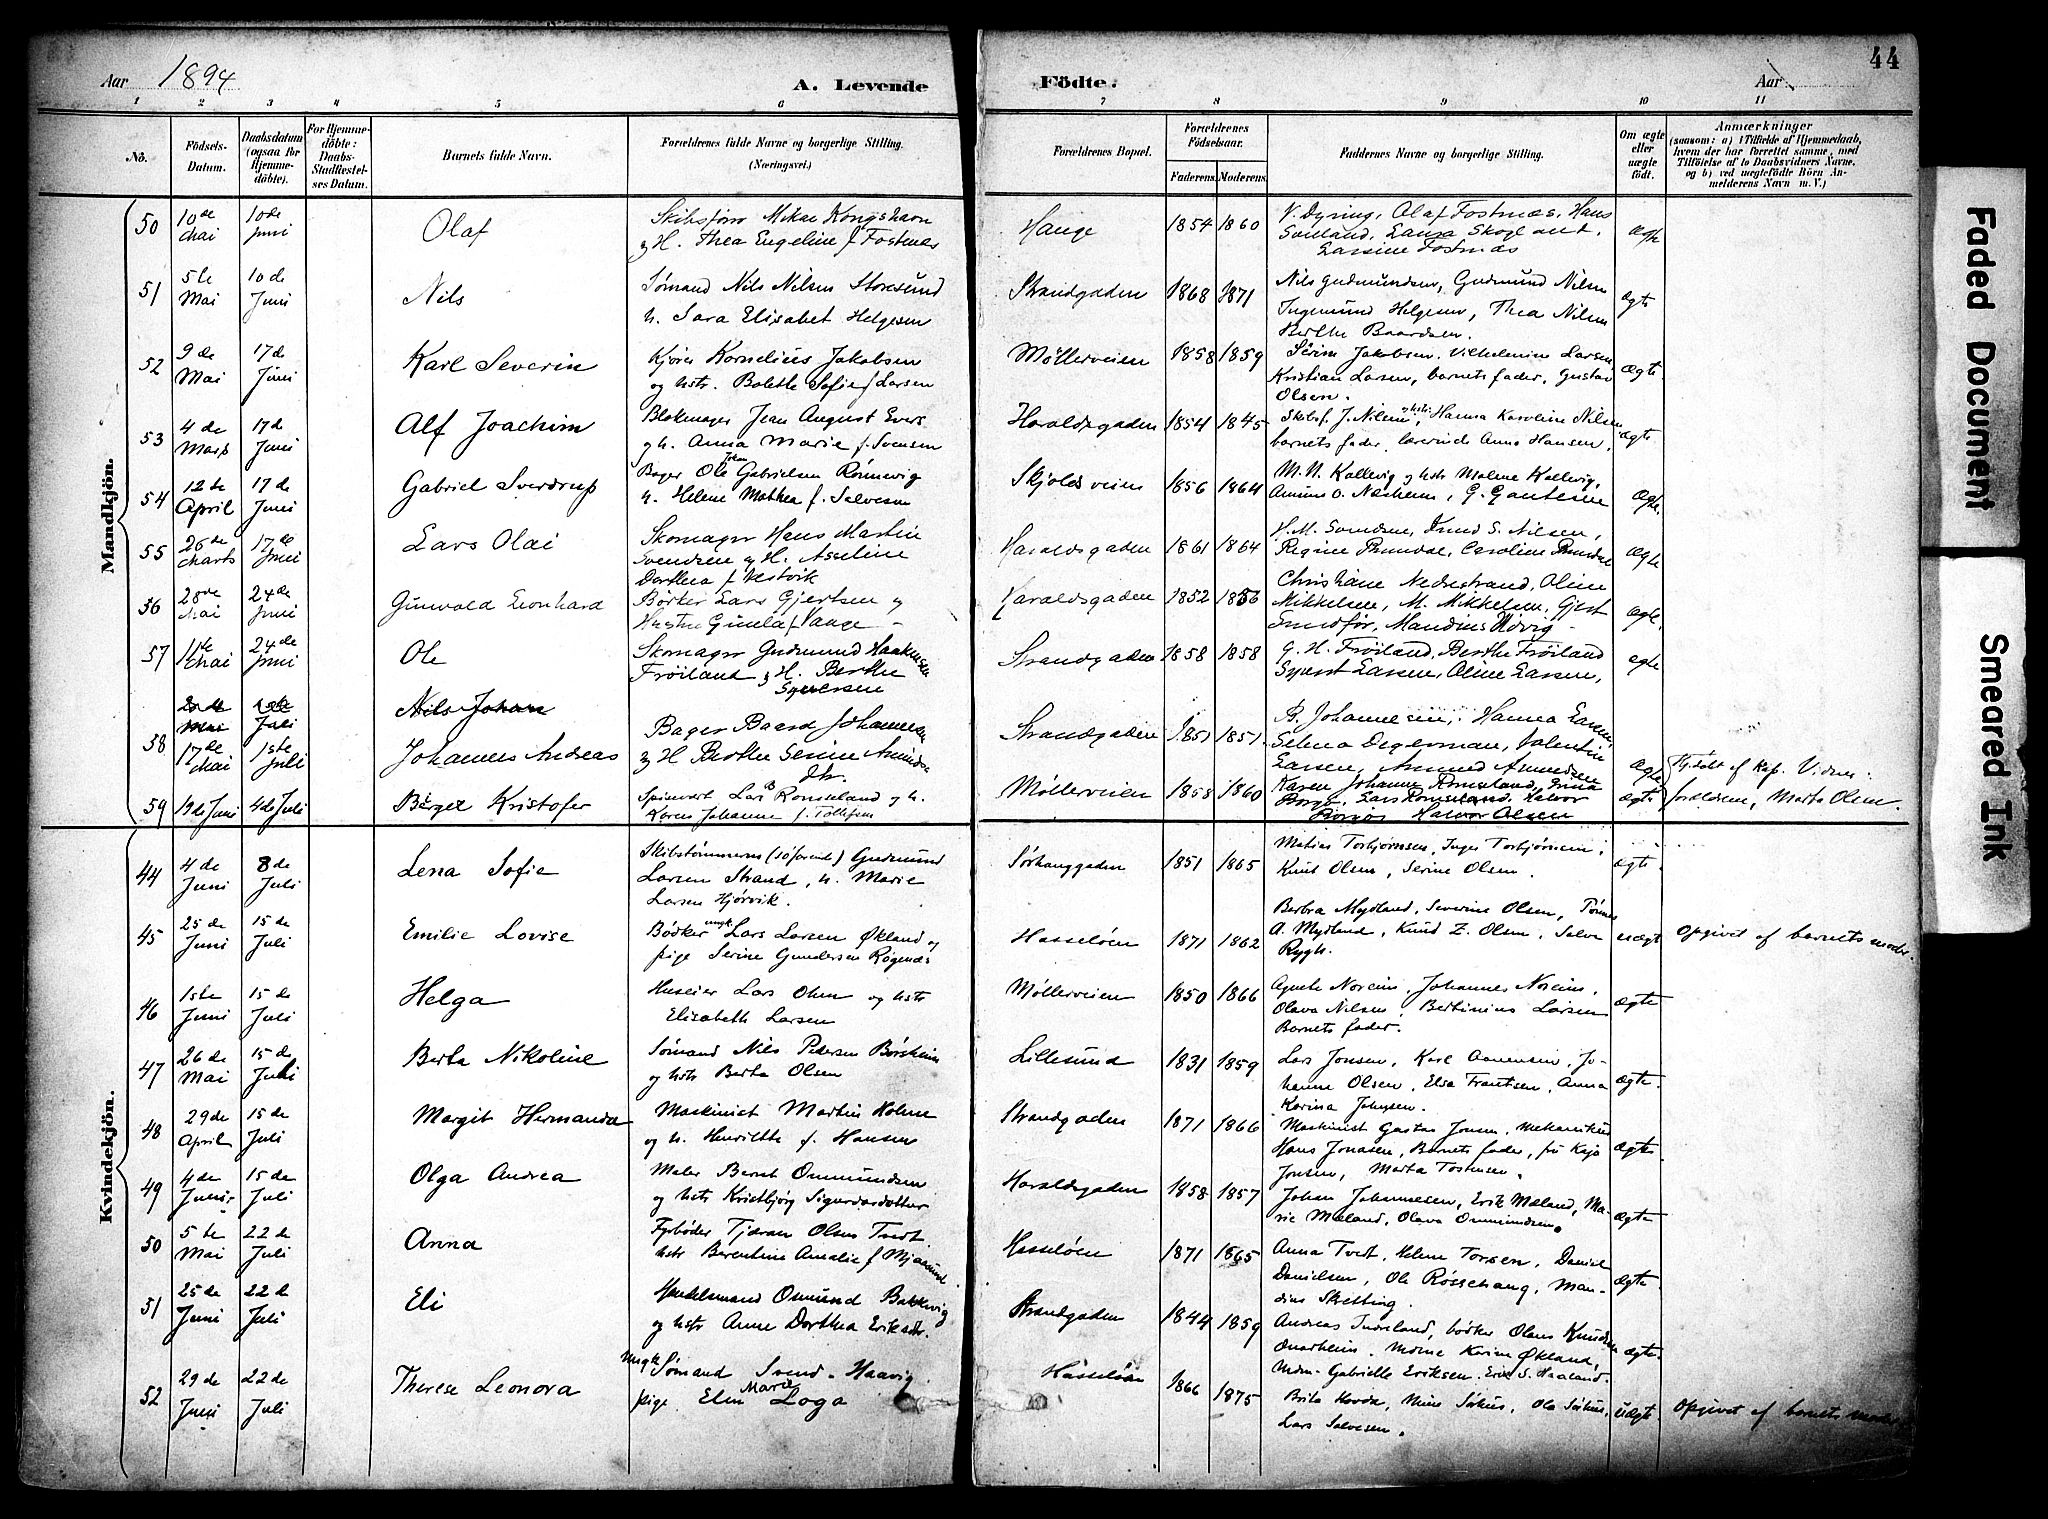 44
Aar 1894 A. Levende Födte. Aar
1 2 3 4 5 6 7 8 9 10 11
No. Födsels-Datum. Daabsdatum (ogsaa for Hjemmedöbte). For Hjemmedöbte: Daabs-Stadfæstelses Datum. Barnets fulde Navn. Forældrenes fulde Navne og borgerlige Stilling. (Næringsvei.) Forældrenes Bopæl. Forældrenes Födselsaar. Faderens. Moderens. Faddernes Navne og borgerlige Stilling. Om ægte eller uægte födt. Anmærkninger (saasom: a) i Tilfælde af Hjemmedaab, hvem der har forrettet samme, med Tilföielse af to Daabsvidners Navne, og b) ved uægtefödte Börn Anmelderens Navn m. V.)
Mandkjön.
50 10de Mai 10de Juni Olaf Skibsförer Mikal Kongshavn
g H. Thea Engeline f Fostnæs Hauge 1854 1860 V. Dyring, Olaf Fostnæs, Hans
Lansa Skogland,
Larsine Fostnæs ægte
51 5te Mai 10de Juni Nils Sømand Nils Nilsen Storesund
h. Sara Elisabet Helgesen Strandgaden 1868 1871 Nils Gudmundsen, Gudmund Nilsen
Ingemund Helgesen, Thea Nilsen
Berthe Baardsen ægte
52 9de Mai 17de Juni Karl Severin Kjører Kornelius Jakobsen
og hstr. Bolette Sofie f Larsen Møllerveien 1858 1859 Sevrin Jakobsen, Vilhelmine Larsen,
Kristian Larsen, barnets fader, Gustav
Olsen. ægte
53 4de Marts 17de Juni Alf Joachim Blokmager Jean August Evers
og h. Anna Marie f. Svensen Haraldsgaden 1854 1845 Skibsf. J. Nilsen, Hanna Karoline Nilsen
barnets fader, lærerinde Anna Hansen, ægte
54 12te April 17de Juni Gabriel Sverdrup Bager Ole Johan Gabrielsen Rønnevig
h. Helene Mathea f. Salvesen Skjoldsveien 1856 1864 M. N. Kallevig og hstr Malene Kallevig,
Amund O. Næsheim, G. Gautesen ægte.
55 26de Marts 17de Juni Lars Olai Skomager Hans Martin
Svendsen og H. Aseline
Dorthea f. Vestvik Haraldsgaden 1861 1864 H. M. Svendsen, Knud S. Nilsen,
Regine Thundal, Caroline Thundal ægte
56 28de Mai 24de Juni Gunvald Leonhard Bødker Lars Gjertsen og
Hustru Gunela f Vange Haraldsgaden 1852 1856 Christiane Nedrestrand, Oline
Mikkelsen, M. Mikkelsen, Gjert
Sundfør, Mandius Udvig ægte.
57 11te Mai 24de Juni Ole Skomager Gudmund Haakensen
Frøiland g H. Berthe
Syversen Strandgaden 1858 1858 G. H. Frøiland, Berthe Frøiland
Syvert Larsen, Oline Larsen, ægte
Mai Juli Nils Johan
58 17de Mai 1ste Juli Johannes Andreas Bager Baard Johannesen
g H Berthe Serine Amunds
dtr. Strandgaden 1851 1851 B. Johannesen, Hanna Larsen,
Selena Degerman, Valentin
Larsen, Amund Amundsen ægte Hj.döbt af Kap. Vidner:
59 19de Juni 4de Juli Birger Kristofer Spinner Lars B Romseland og h.
Karen Johanne f. Tollefsen Møllerveien 1858 1860 Karen Johanne Romseland,
Lars Romseland, Halvor
Halvor Olsen ægte. forældrene, Marta Olsen.
Kvindekjön.
44 4de Juni 8de Juli Lena Sofie Skibstømmerm (søfarende) Gudmund
Larsen Strand, h. Marie
Larsen Hjørvik. Sørhauggaden 1851 1865 Matias Torbjørnsen, Inger Torbjørnsen,
Knut Olsen, Serine Olsen. ægte.
45 25de Juni 15de Juli Emilie Lovise Bødker ungk Lars Larsen Økland og
pige Serine Gundersen Røgenæs Hasseløen 1871 1862 Berbra Mydland, Severine Olsen, Tønnes
A. Mydland, Knud Z. Olsen, Salve
Rygh. uægt Opgivet af barnets moder.
46 1ste Juni 15de Juli Helga Huseier Lars Olsen og hstr
Elisabeth Larsen Møllerveien 1850 1866 Agnete Noreim, Johannes Noreim,
Olava Nilsen, Bertinius Larsen
Barnets fader. ægte
47 26de Mai 15de Juli Berta Nikoline Sømand Nils Pedersen Børsheim
og hstr Berta Olsen Lillesund 1831 1859 Lars Jonsen, Karl Aanensen, Jo-
hanne Olsen, Elsa Frantsen, Anna
Karina Johnsen. ægte.
48 29de April 15de Juli Margit Hermanda Maskinist Martin Holme
og h. Henriette f. Hansen Strandgaden 1871 1866 Maskinist Gustav Jonsen, Mekanikus
Hans Jonassen, Barnets fader, frk Kaja
Jonsen, Marta Tostensen. ægte.
49 4de Juni 15de Juli Olga Andrea Maler Bernt Ommundsen
og hstr Kristbjörg Sigurdsdotter Haraldsgaden 1858 1857 Johan Johannesen, Erik Mæland, Ma-
rie Mæland, Olava Ommundsen. ægte
50 5te Mai 22de Juli Anna Fyrbøder Tjeran Olsen Tvedt.
hstr Berentine Amalie f Mjaasund. Hasseløen 1871 1865 Anna Tvedt, Helene Torsen, Daniel
Danielsen, Ole Røssehaug, Man-
dius Skretting. ægte
51 25de Juni 22de Juli Eli Handelsmand Osmund Bakkevig
og hstr Anne Dorthea Eriksdr. Strandgaden 1844 1859 Andreas Indreland, bødker Olaus Knudsen
Qvarheim, Mdme Karine Økland,
Mdm. Gabrielle Eriksen. Erik S. Haaland. ægte.
52 29de Juni 22de Juli Therese Leonora Ungk Sømand Svend Haavig.
pige. Elen Marie Loga Hasseløen 1866 1875 Brita Hovda, Mine Sørhus, Ole Sørhus,
Lars Salvesen. uægte Opgivet af barnets moder
Faded Document
Smeared Ink